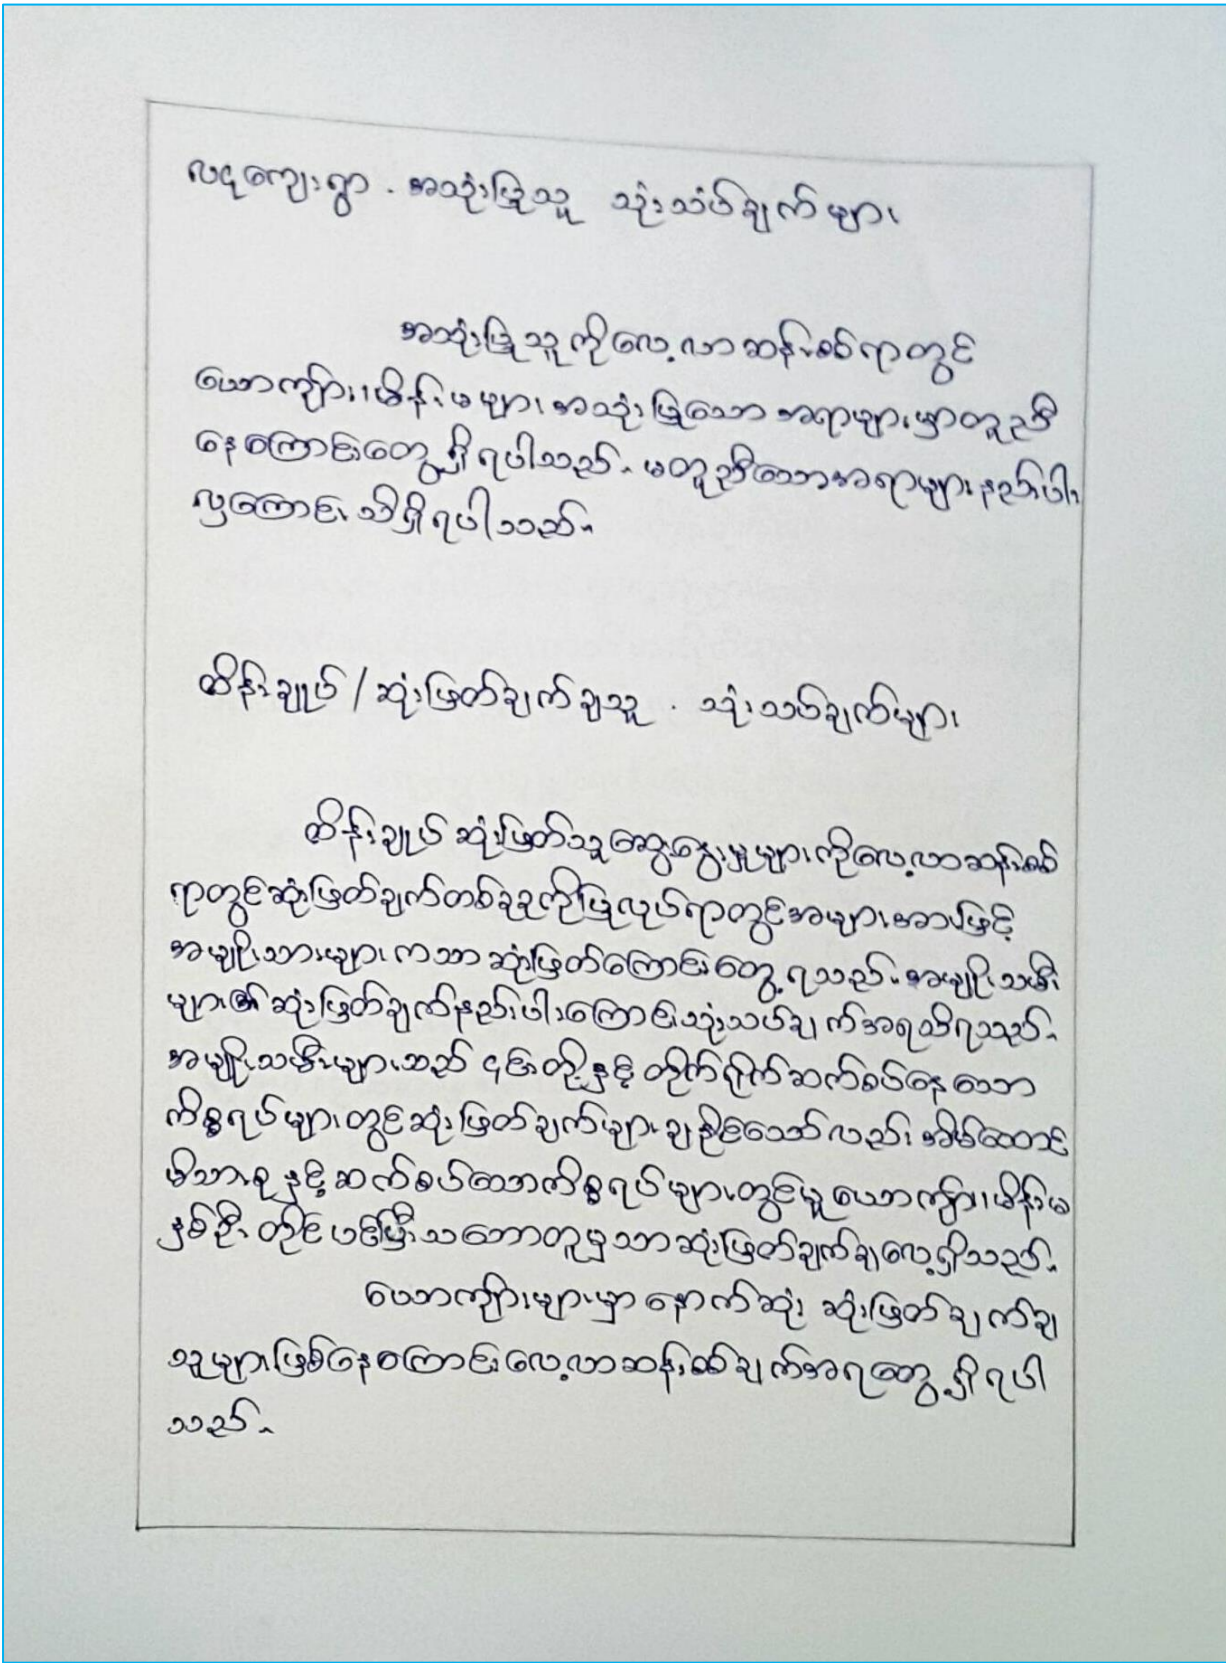 လငုကျေးရွာ . အသုံးပြုသူ သုံးသပ်ချက်များ
အသုံးပြုသူကိုလေ့လာဆန်းစစ်ရာတွင်
ယောကျ်ား၊မိန်းမများ အသုံးပြုသော အရာများမှာတူညီ
နေကြောင်းတွေ့ရှိရပါသည်။ မတူညီသောအရာများနည်းပါး
လှကြောင်း သိရှိရပါသည်။
ထိန်းချုပ် / ဆုံးဖြတ်ချက်ချသူ . သုံးသပ်ချက်များ
ထိန်းချုပ် ဆုံးဖြတ်သူဆွေးနွေးမှုများကိုလေ့လာဆန်းစစ်
ရာတွင်ဆုံးဖြတ်ချက်တစ်ခုခုကိုပြုလုပ်ရာတွင်အများအားဖြင့်
အမျိုးသားများကသာ ဆုံးဖြတ်ကြောင်းတွေ့ရသည်။ အမျိုးသမီး
များ၏ဆုံးဖြတ်ချက်နည်းပါးကြောင်းသုံးသပ်ချက်အရသိရသည်။
အမျိုးသမီးများသည် ၎င်းတို့နှင့် တိုက်ရိုက်ဆက်စပ်နေသော
ကိစ္စရပ်များတွင်ဆုံးဖြတ်ချက်များချနိုင်သော်လည်း အိမ်ထောင်
မိသားစုနှင့်ဆက်စပ်သောကိစ္စရပ်များတွင်မူယောကျ်ား၊မိန်းမ
နှစ်ဦးတိုင်ပင်ပြီးသဘောတူမှသာဆုံးဖြတ်ချက်ချလေ့ရှိသည်။
ယောကျ်ားများမှာ နောက်ဆုံး ဆုံးဖြတ်ချက်ချ
သူများဖြစ်နေကြောင်းလေ့လာဆန်းစစ်ချက်အရတွေ့ရှိရပါ
သည်။